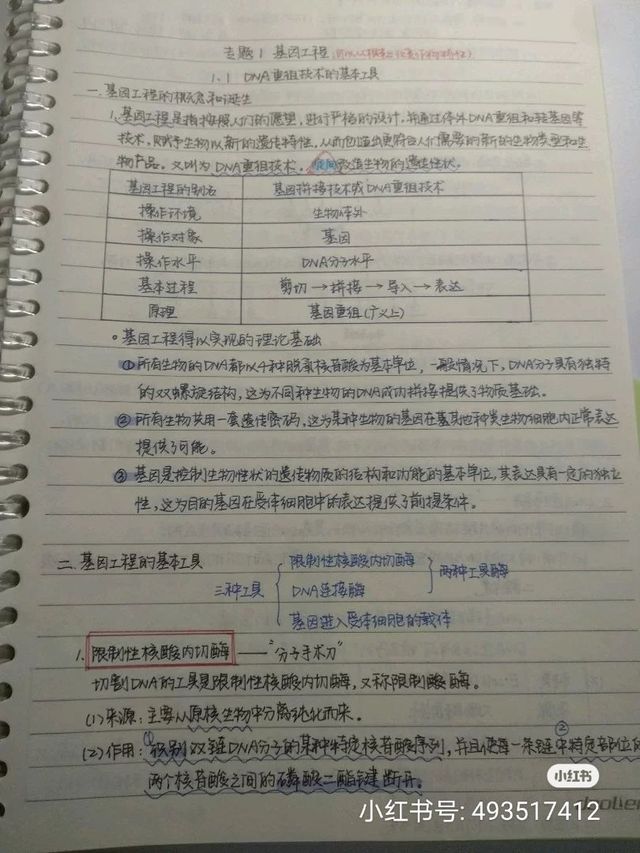 专题1 基因工程
1.1 DNA重组技术的基本工具
一.基因工程的概念和诞生
1.基因工程是指按照人们的愿望,进行严格的设计,并通过体外DNA重组和转基因等
技术,赋予生物以新的遗传特性,从而创造出更符合人们需要的新的生物类型和生
物产品。又叫为DNA重组技术。定向改造生物的遗传性状。
基因工程的别名 基因拼接技术或DNA重组技术
操作环境 生物体外
操作对象 基因
操作水平 DNA分子水平
基本过程 剪切→拼接→导入→表达
原理 基因重组(广义上)
。基因工程得以实现的理论基础
①所有生物的DNA都以4种脱氧核苷酸为基本单位,一般情况下,DNA分子具有独特
的双螺旋结构,这为不同种生物的DNA成功拼接提供了物质基础。
②所有生物共用一套遗传密码,这为某种生物的基因在其他种类生物细胞内正常表达
提供了可能。
③基因是控制生物性状的遗传物质的结构和功能的基本单位,其表达具有一定的独立
性,这为目的基因在受体细胞中的表达提供了前提条件。
二.基因工程的基本工具
三种工具
限制性核酸内切酶
DNA连接酶
两种工具酶
基因进入受体细胞的载体
1.限制性核酸内切酶——"分子手术刀"
切割DNA的工具是限制性核酸内切酶,又称限制酸酶。
(1)来源:主要从原核生物中分离纯化而来。
(2)作用:①识别双链DNA分子的某种特定核苷酸序列,并且使每一条链②中特定部位的
两个核苷酸之间的磷酸二酯键断开。
小红书
小红书号: 493517412